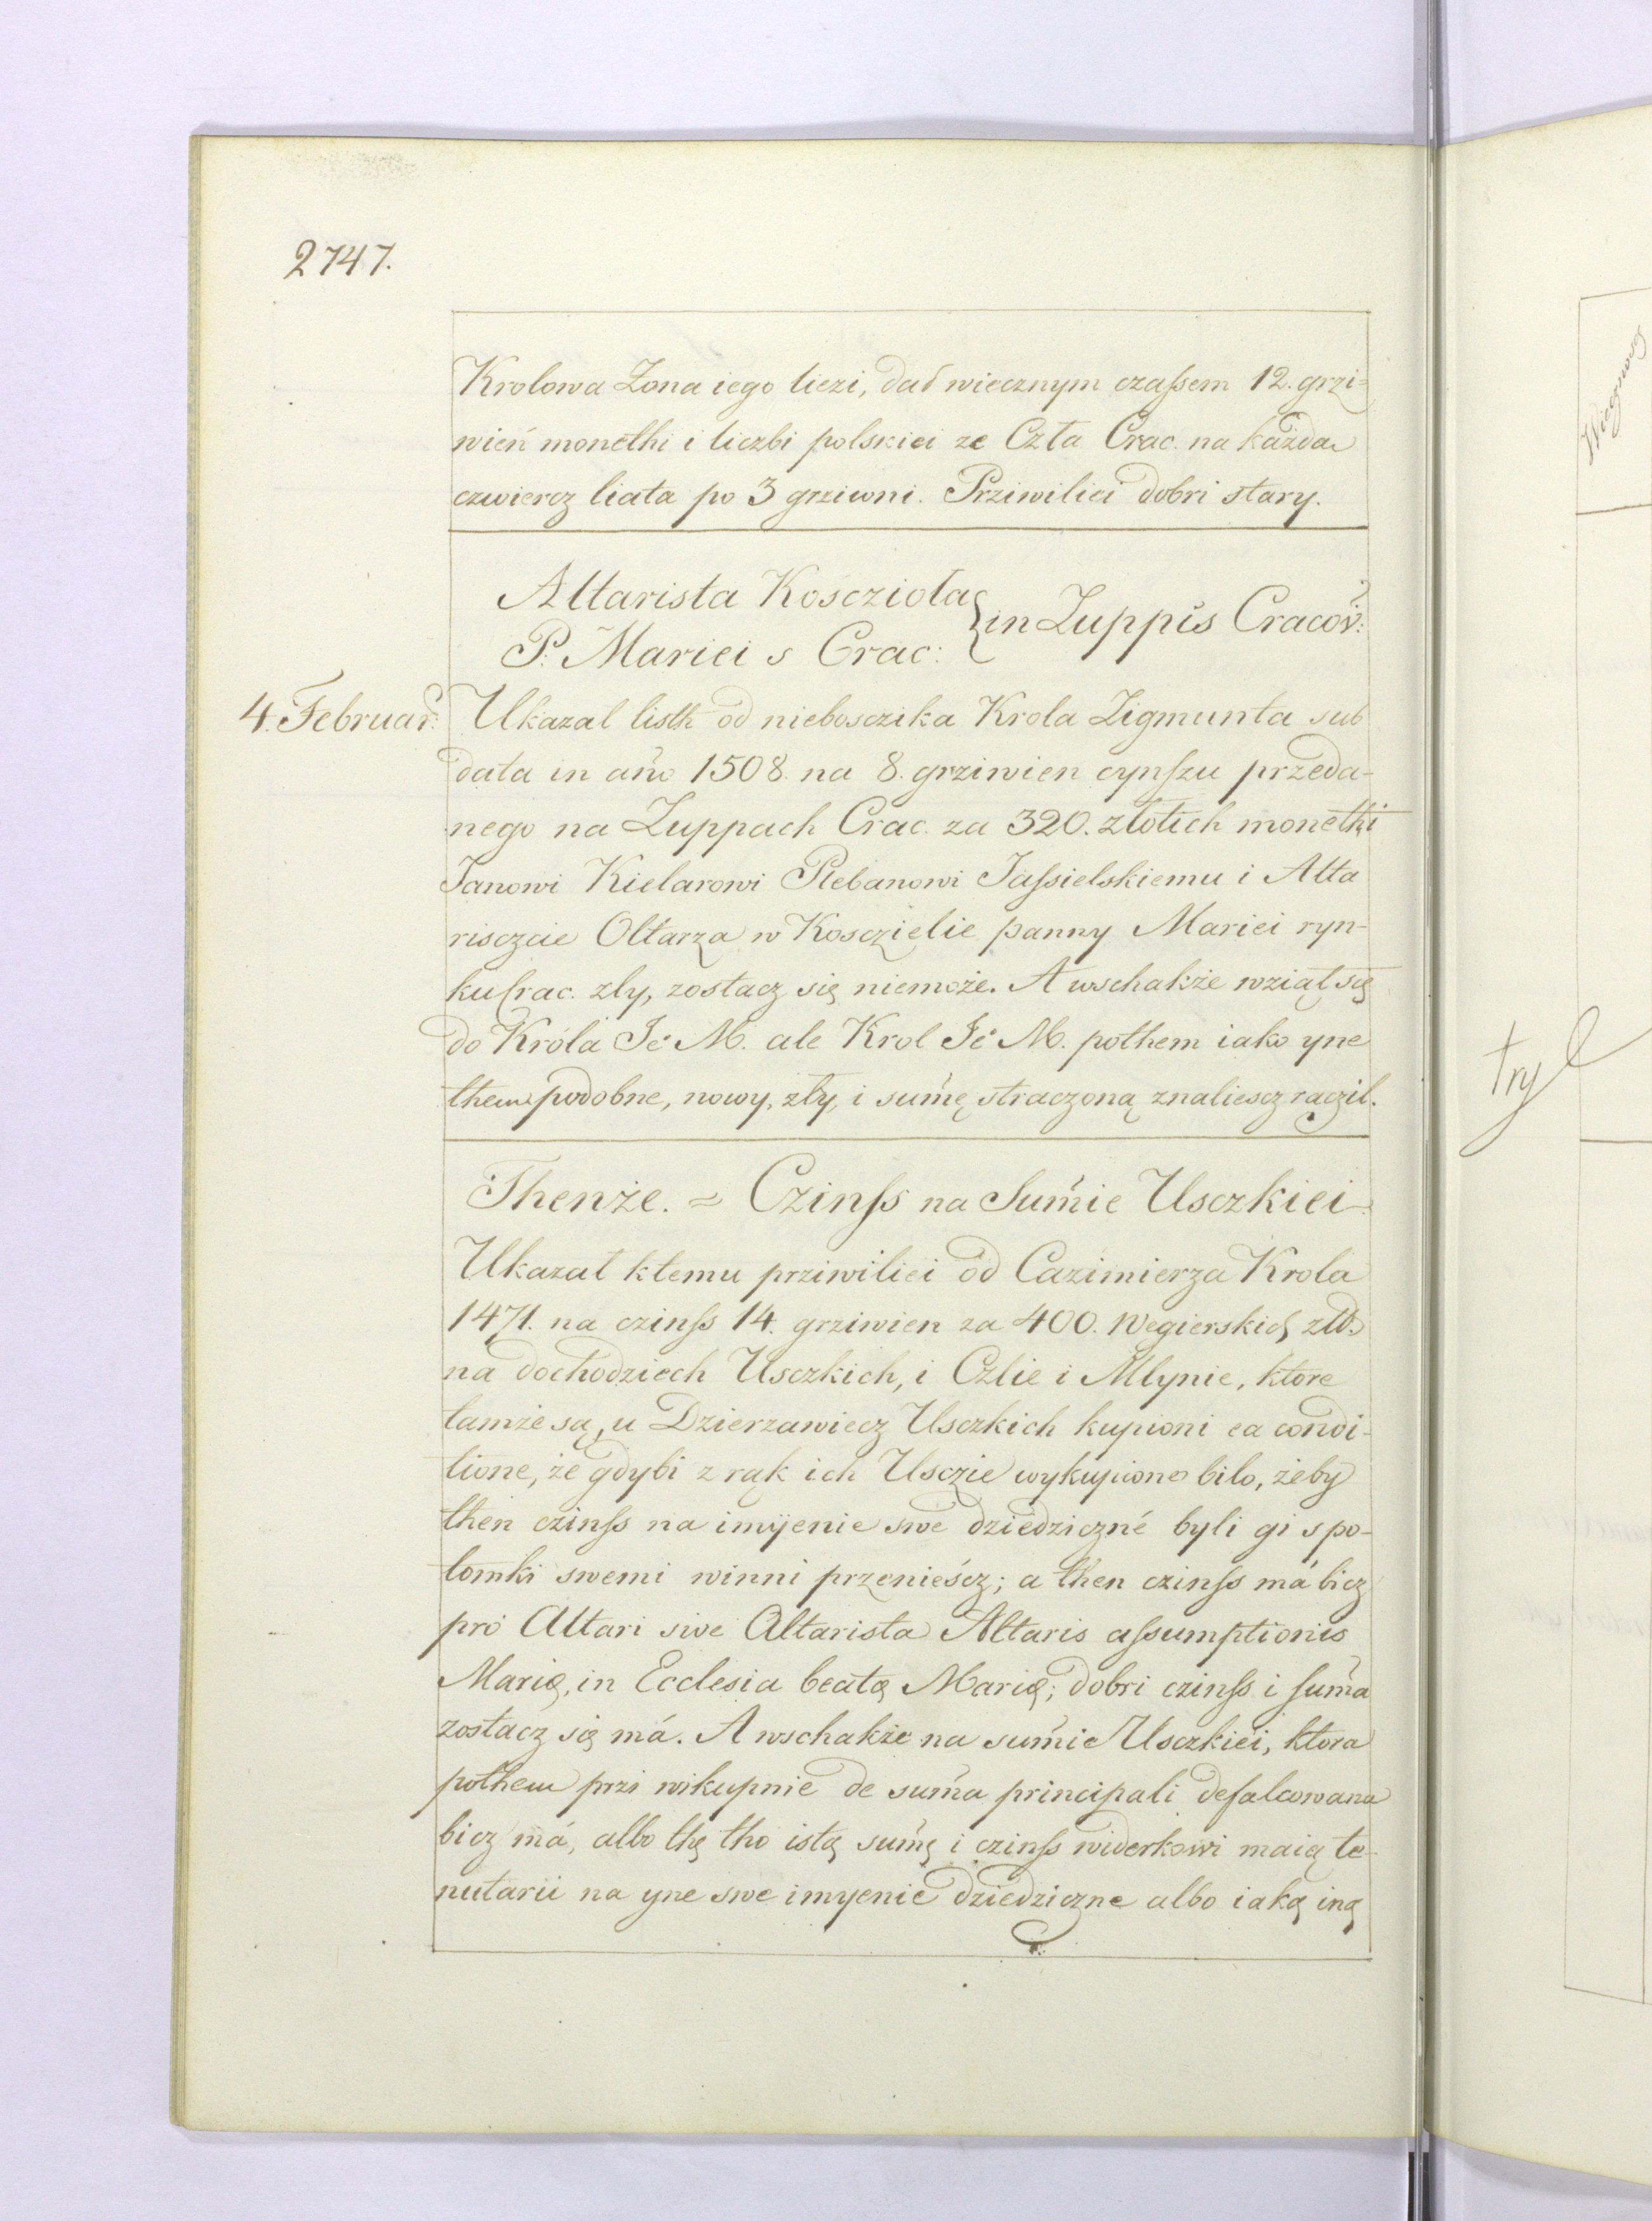 2747.
Krolowa Żona iego liezi, dał wiecznym czaſsem 12. grzi=
wień monethi i liczbi polskiei ze Czła Crac. na każda
czwiercz liata po 3 grziwni. Prziwiliei dobri stary.
Altarista Koscziola
P. Mariei s Crac: } in Zuppis Cracov:
4. Februar: Ukazal listh od nieboszczika Krola Zigmunta sub
data in ano 1508. na 8. grziwien cynſzu przeda-
nego na Zuppach Crac. za 320. złotich monethi
Janowi Kielarowi Plebanowi Jaſsielskiemu i Alta
risczcie Oltarza w Kosczielie panny Mariei ryn-
ku Crac. zly, zostacz się niemoże. A wschakże wziął się
do Króla Je M. ale Krol Je M. pothem iako yne
themu podobne, nowy, zły, i sumę straczoną znaliescz raczil.
Thenże. = Czinſs na Sumie Usczkiei
Ukazal ktemu prziwiliei od Cazimierza Krola
1471. na czinſs 14. grziwien za 400. Wegierskich złł.
na dochodziech Usczkich, i Czlie i Mlynie, ktore
tamże są, u Dzierzawiecz Usczkich kupioni ea condi-
tione, że gdybi z rąk ich Usczie wykupiono bilo, żeby
then czinſs na imyenie swe dziedziczné byli gi s po-
tomki swemi winni przenieścz; a then czinſs má bicz
pro Altari sive Altarista Altaris aſsumptionis
Marię, in Ecclesia beatę Marię; dobri czinſs i ſuma
zostacz się má. A wschakże na sumie Usczkiei, ktora
pothem przi wikupnie de suma principali defalcowana
bicz má, albo thę tho istą sumę i czinſs widerkowi maią te-
nutarii na yne swe imyenie dziedziczne albo iaką iną